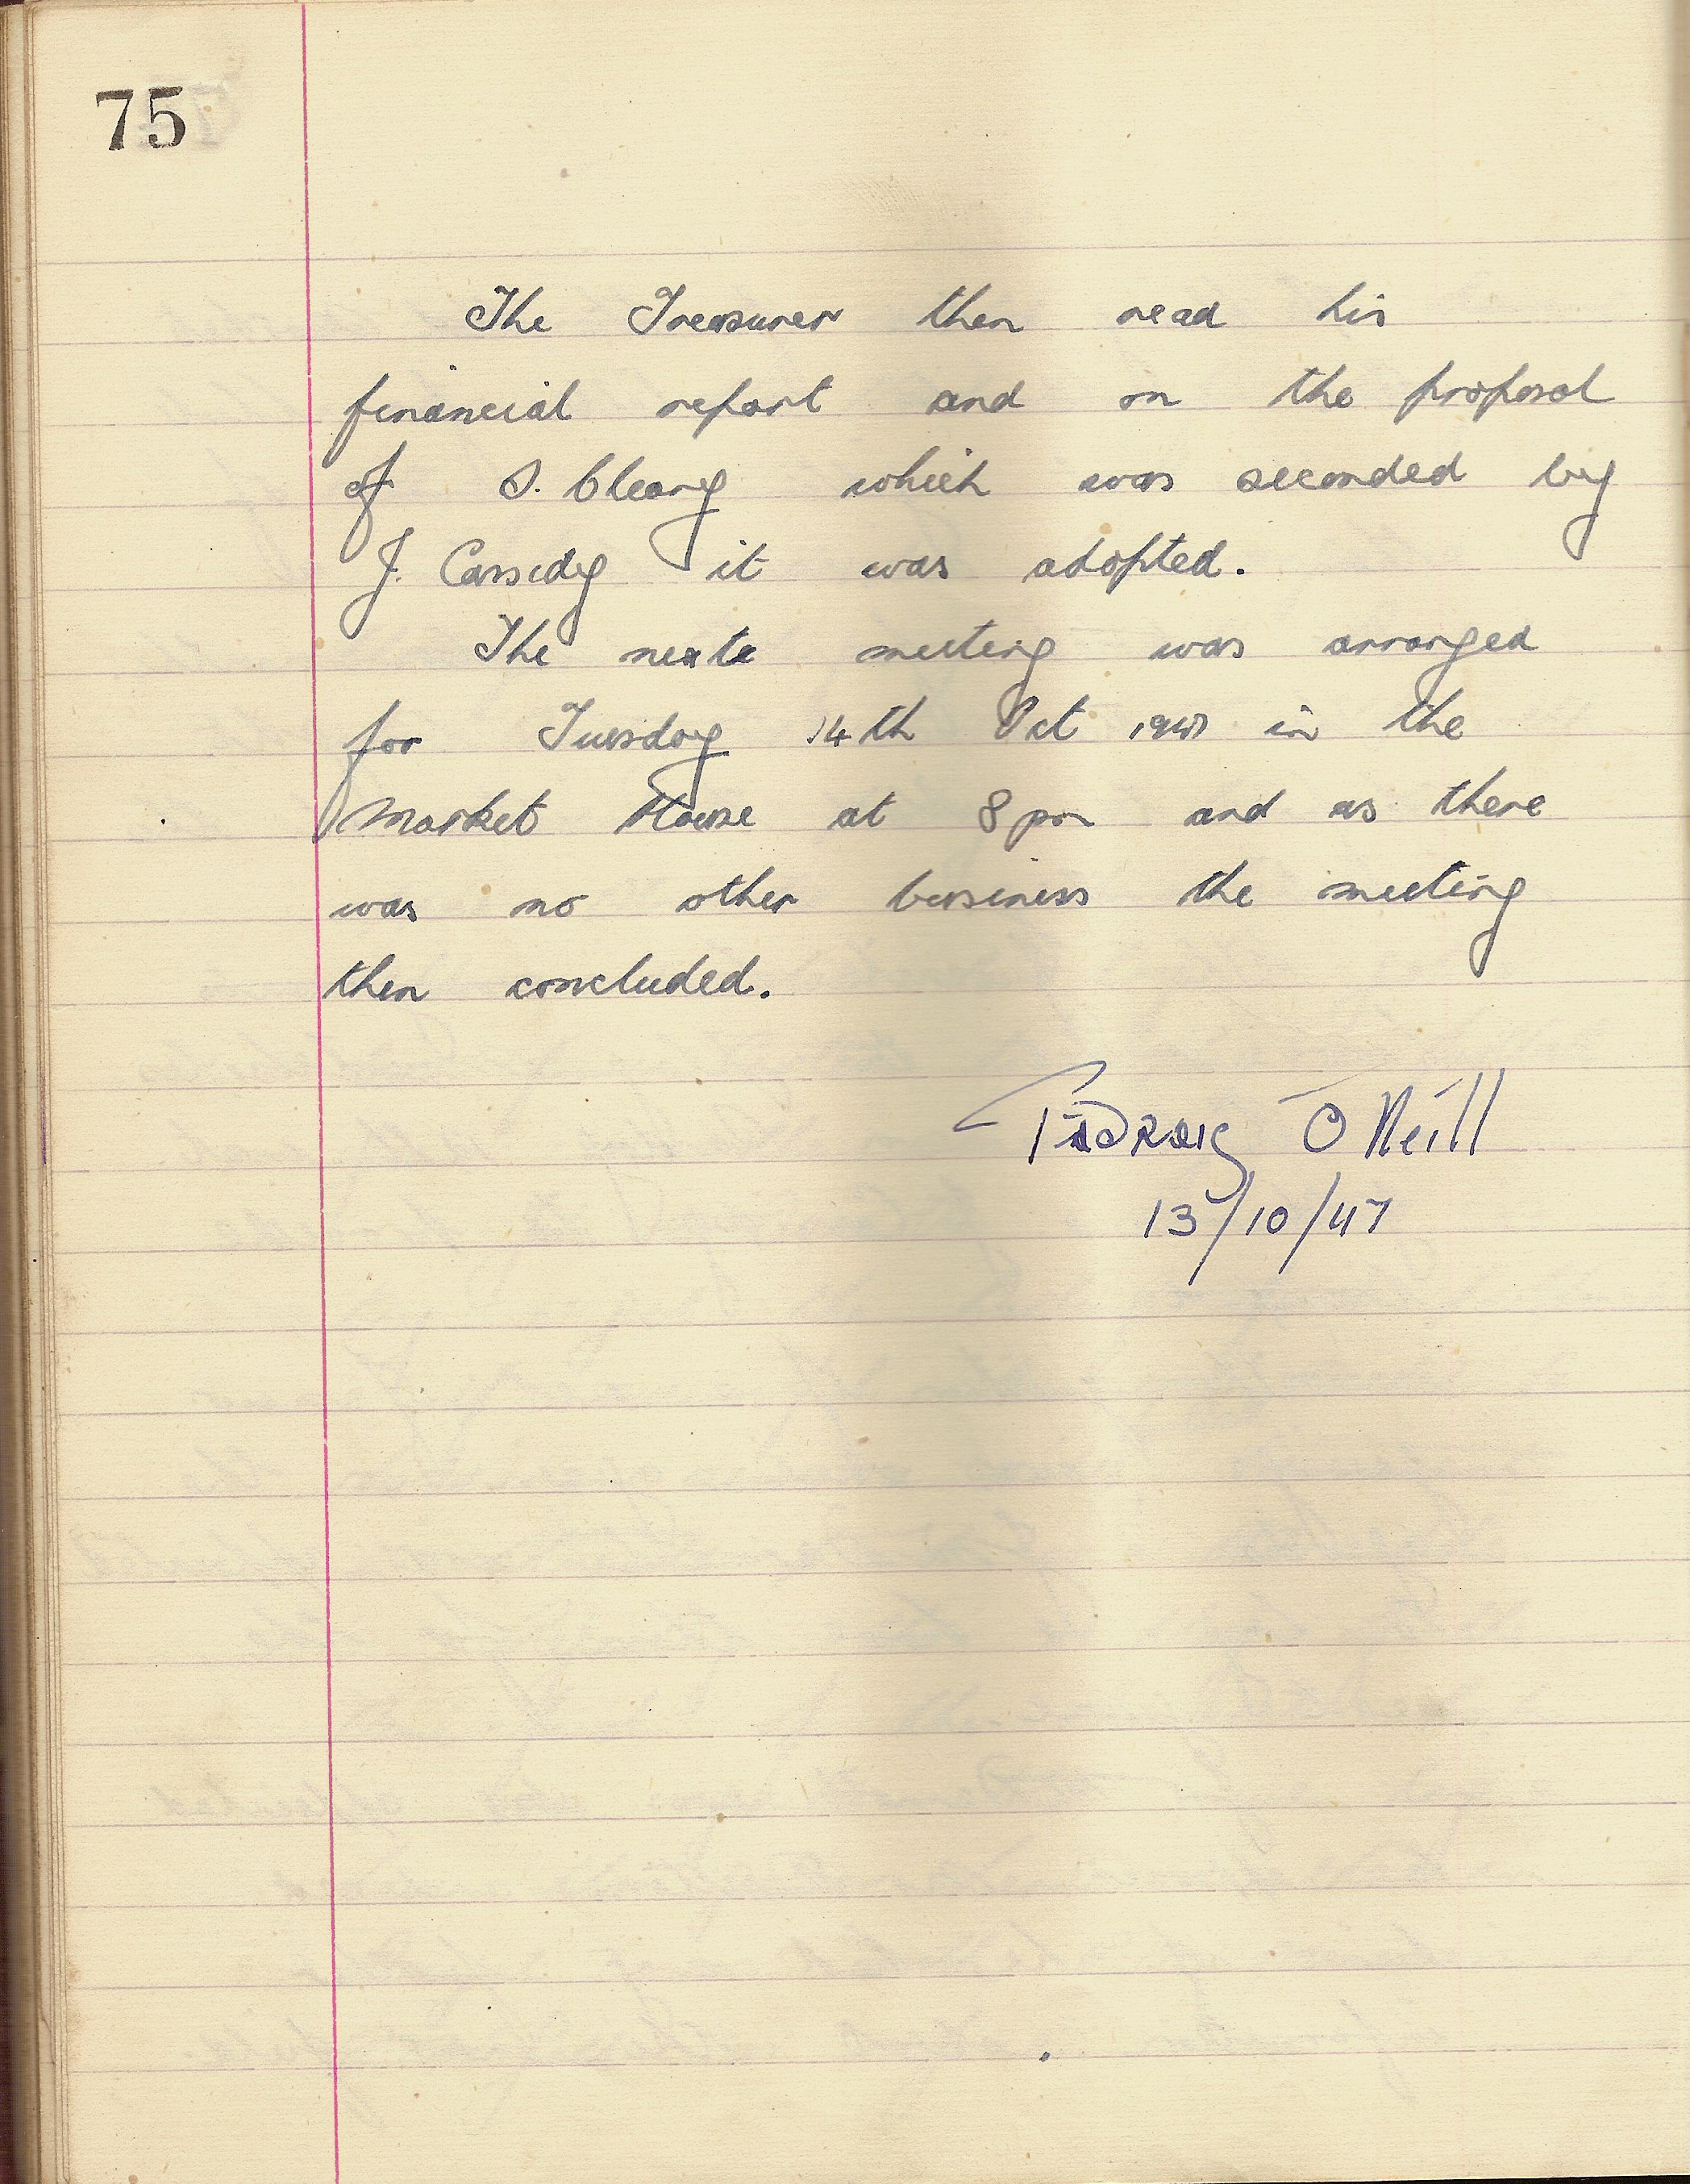 75
The Treasurer then read his
financial report and on the proposal
of S. Cleary which was seconded by
J. Cassidy it was adopted.
The next meeting was arranged
for Tuesday 14th Oct 1947 in the
Market House at 8 pm and as there
was no other business the meeting
then concluded.
Pádraig Ó Néill
13/10/47